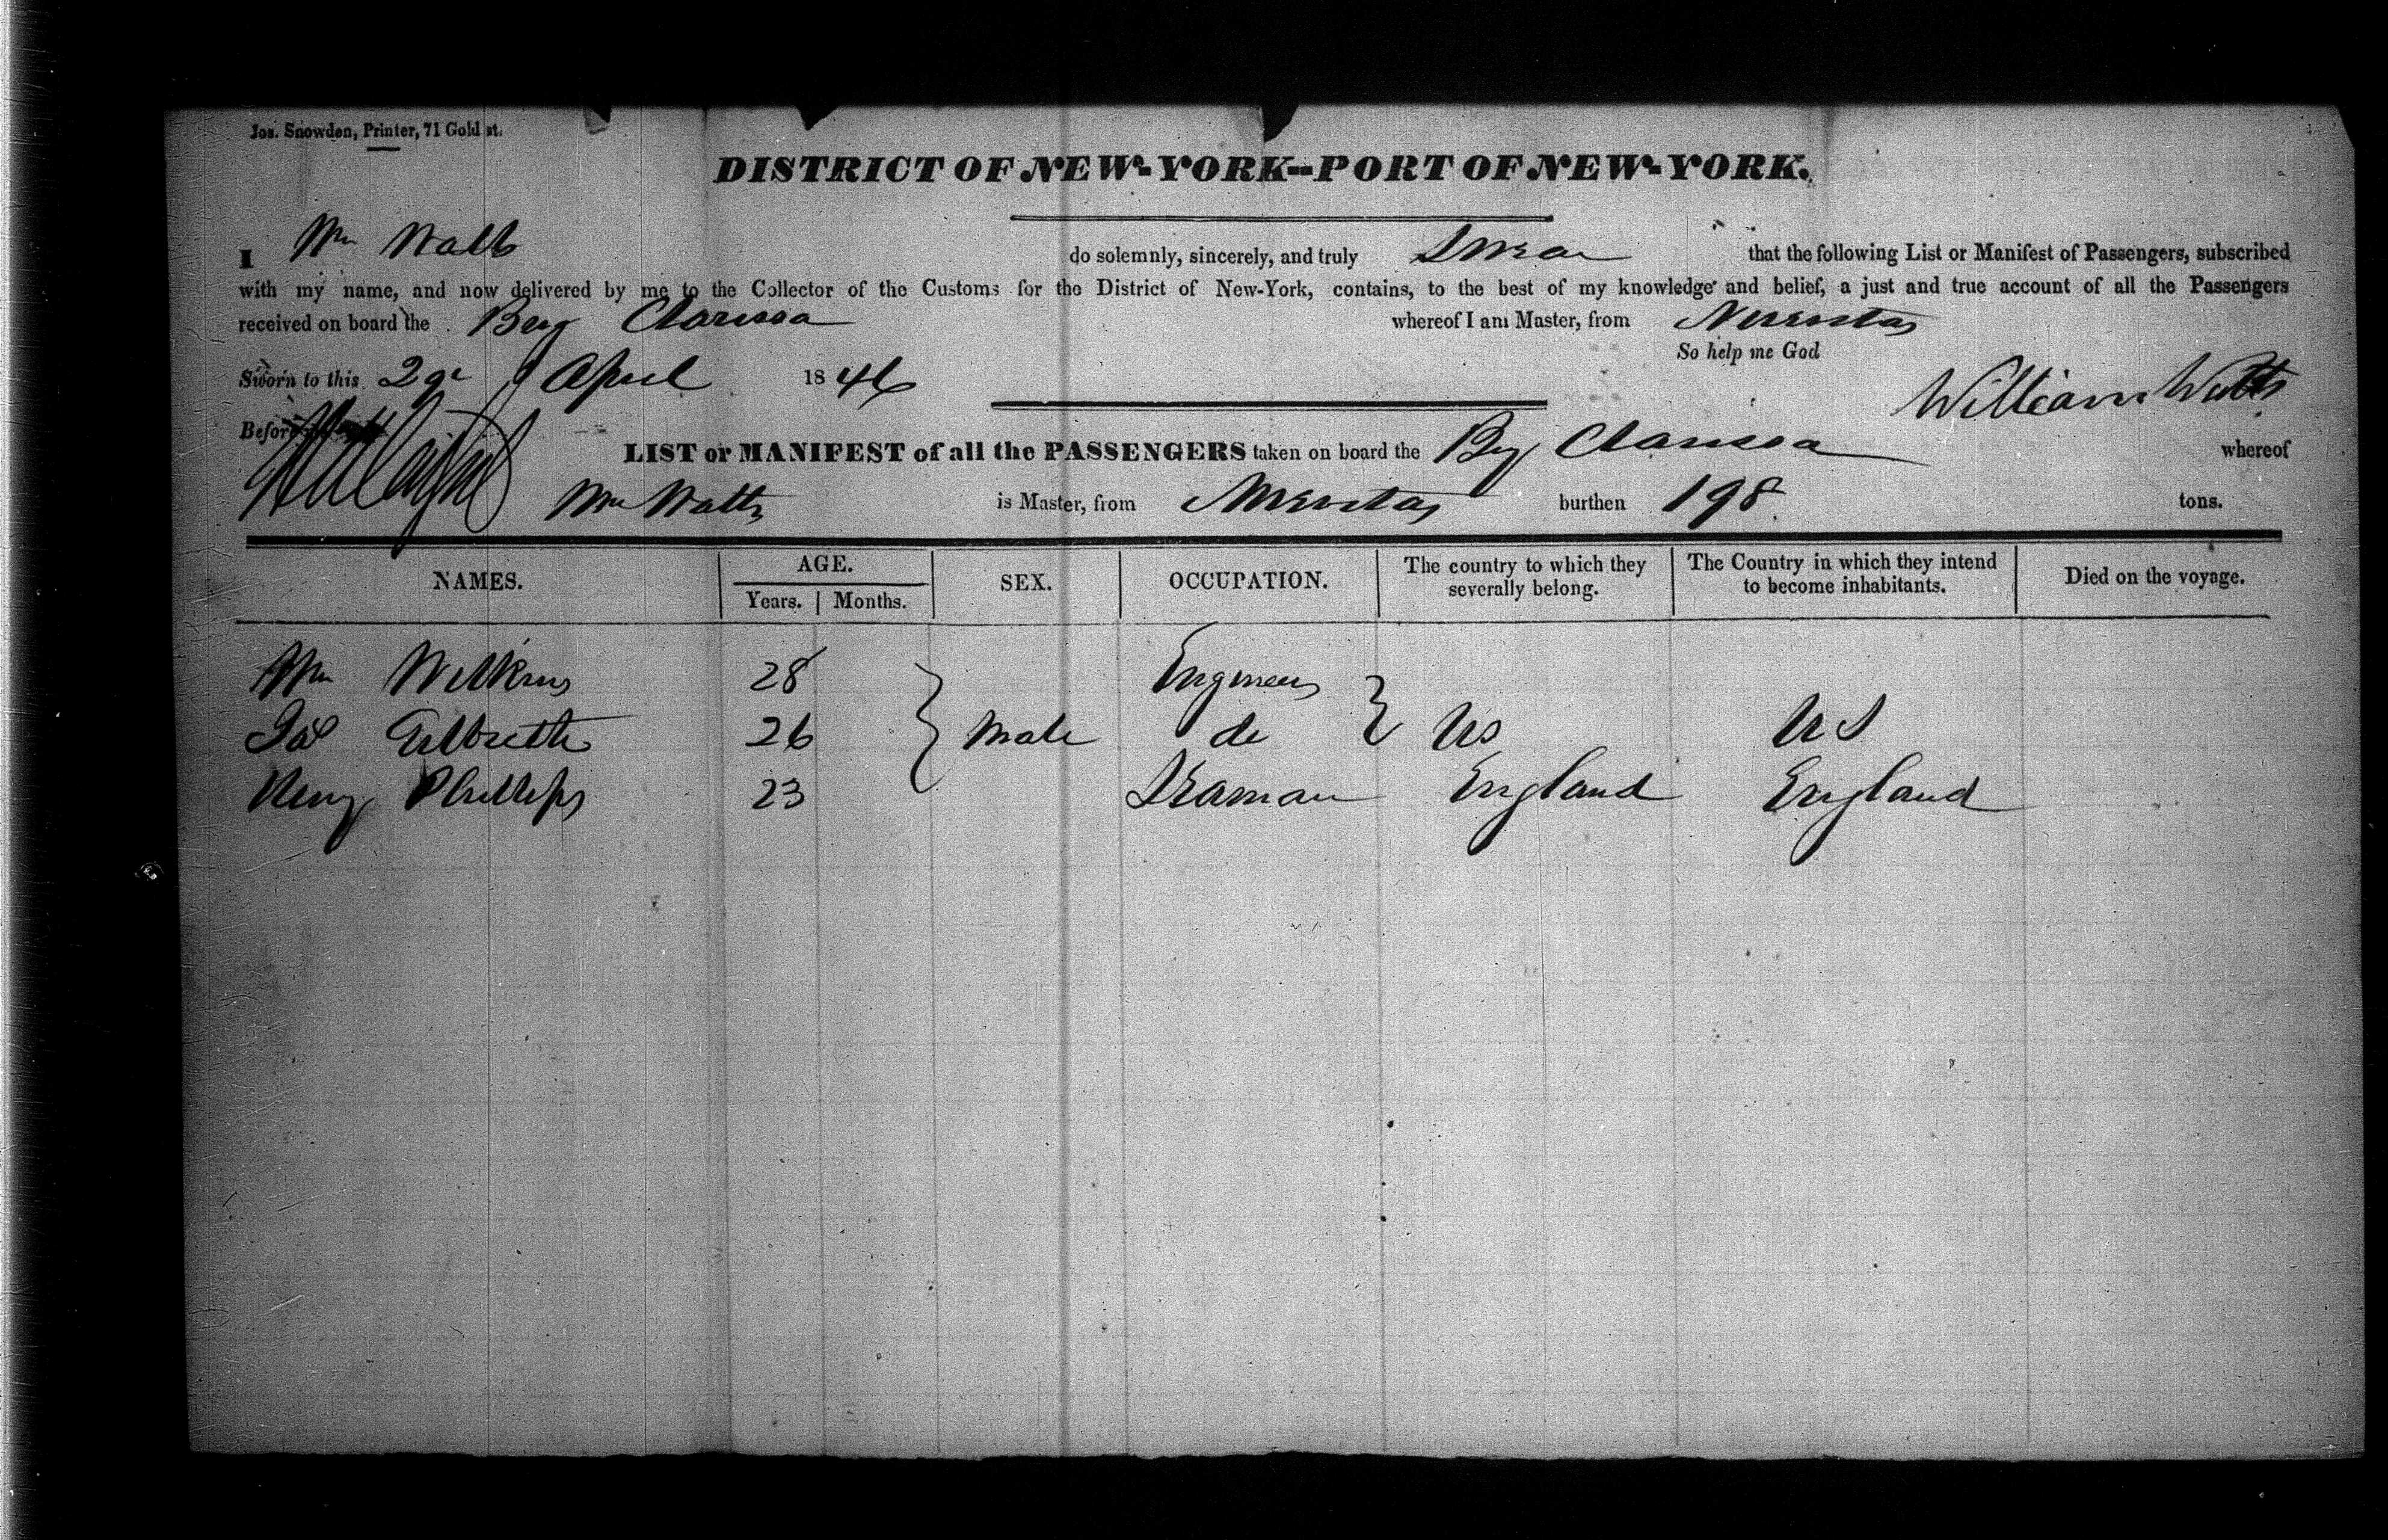 Jos. Snowden, Printer, 71 Gold st.
DISTRICT OF NEW-YORK--PORT OF NEW-YORK.
I Wm Watts do solemnly, sincerely, and truly Swear that the following List or Manifest of Passengers, subscribed
with my name, and now delivered by me to the Collector of the Customs for the District of New-York, contains, to the best of my knowledge and belief, a just and true account of all the Passengers
received on board the Brig Clarissa whereof I am Master, from Nuevitas
So help me God
Sworn to this 29 April 1846
William Watts
Before
LIST or MANIFEST of all the PASSENGERS taken on board the Brig Clarissa whereof
Wm Watts is Master, from Nuevitas burthen 198 tons.
NAMES. AGE. SEX. OCCUPATION. The country to which they severally belong. The Country in which they intend to become inhabitants. Died on the voyage.
Years. Months.
Wm Wilkins 28 Engineer
Jas 26 Male do US US
Henry Phillips 23 Seaman England England